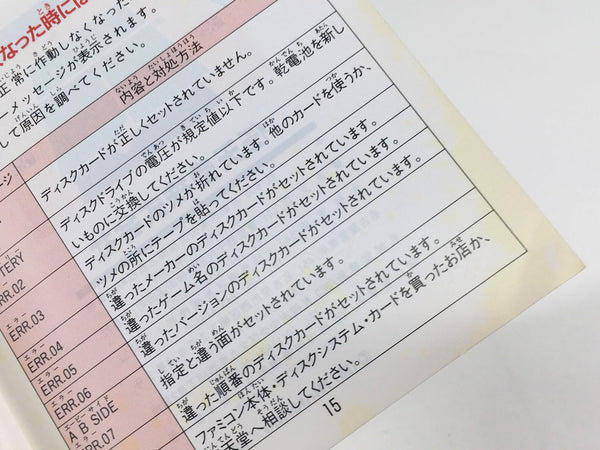 なった時には
正常に作動しなくなった
ーメッセージが表示されます。
して原因を調べてください。
ージ
内容と対処方法
ディスクカードが正しくセットされていません。
TTERY
ディスクドライブの電圧が規定値以下です。乾電池を新し
いものに交換してください。
ERR.02
ディスクカードのツメが折れています。他のカードを使うか、
ツメの所にテープを貼ってください。
ERR.03
違ったメーカーのディスクカードがセットされています。
ERR.04
違ったゲーム名のディスクカードがセットされています。
ERR.05
違ったバージョンのディスクカードがセットされています。
ERR.06
A B SIDE
指定と違う面がセットされています。
ERR.07
違った順番のディスクカードがセットされています。
ファミコン本体・ディスクシステム・カードを買ったお店か、
天堂へ相談してください。
15